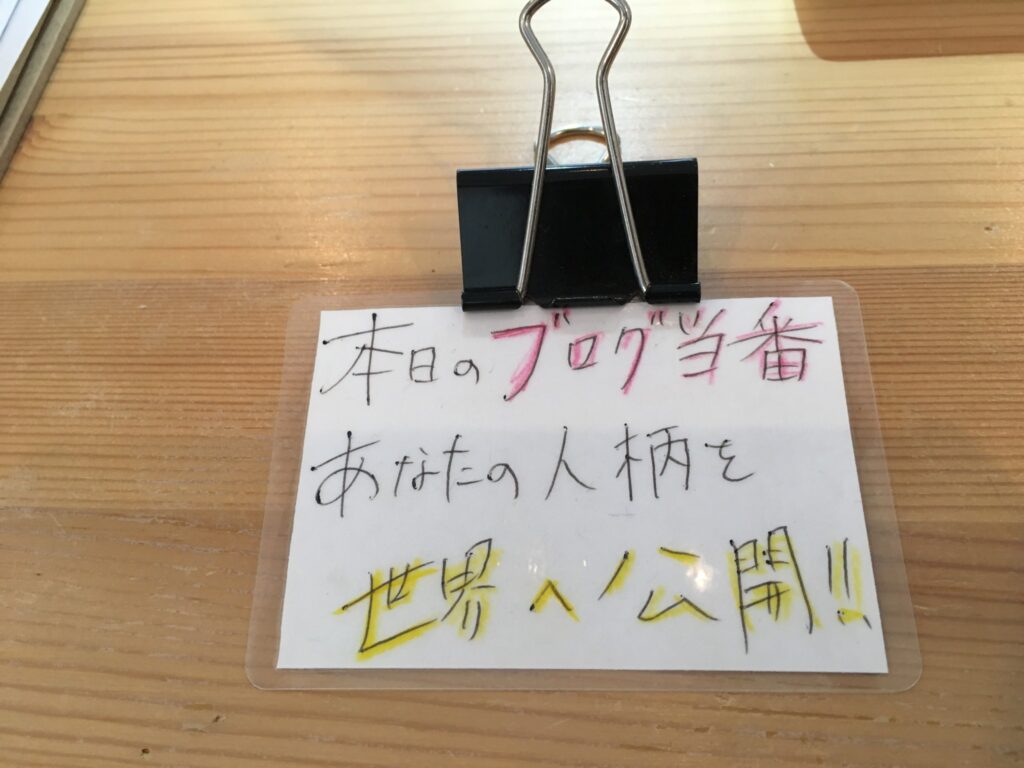 本日のブログ当番
あなたの人柄を
世界へ公開!!